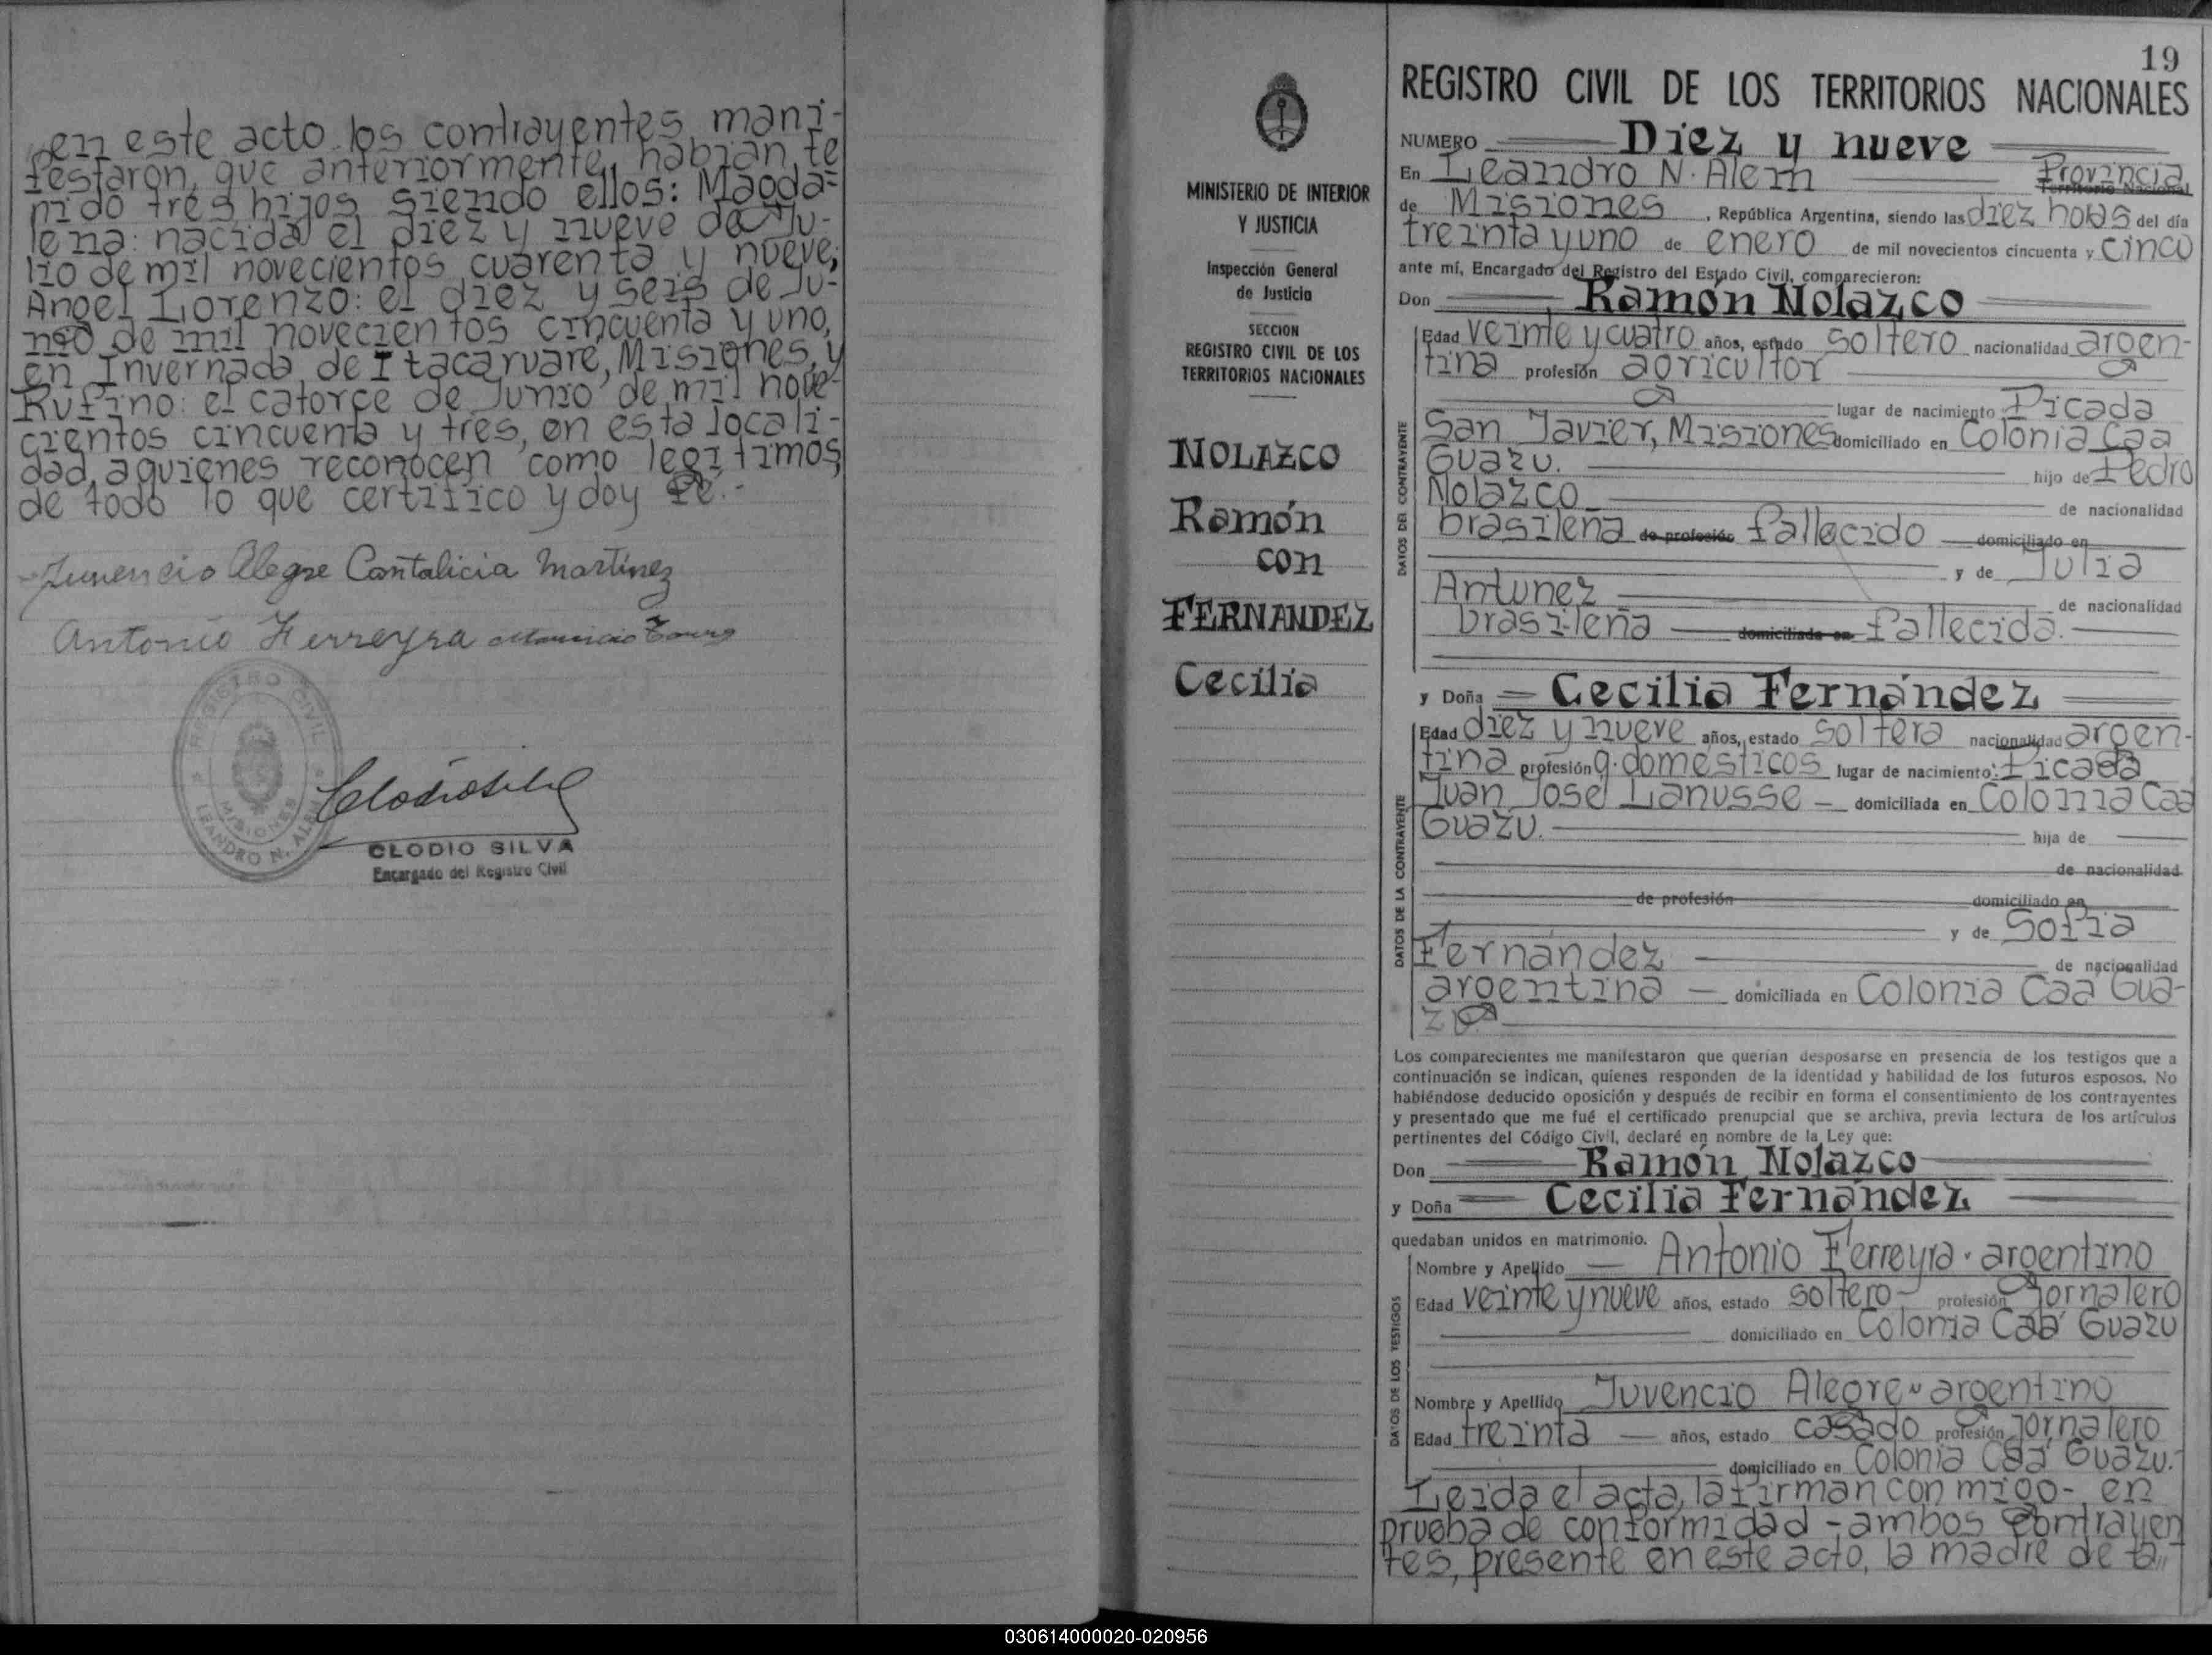 en este acto los contrayentes, mani-
festaron, que anteriormente, habian te
nido tres hijos siendo ellos: Magda=
lena: nacida el diez y nueve de Ju-
lio de mil novecientos cuarenta y nueve;
Angel Lorenzo: el diez y seis de Ju-
nio de mil novecientos cincuenta y uno,
en Invernada de Itacaruaré, Misiones, y
Rufino: el catorce de Junio de mil nove-
cientos cincuenta y tres, en esta locali-
dad, a quienes reconocen como legitimos,
de todo lo que certifico y doy fé.-
Juvencio Alegre Cantalicia Martinez
Antonio Ferreyra
REGISTRO CIVIL
MISIONES
LEANDRO N. ALEM
CLODIO SILVA
Encargado del Registro Civil
MINISTERIO DE INTERIOR
Y JUSTICIA
Inspección General
de Justicia
SECCION
REGISTRO CIVIL DE LOS
TERRITORIOS NACIONALES
NOLAZCO
Ramón
con
FERNANDEZ
Cecilia
19
REGISTRO CIVIL DE LOS TERRITORIOS NACIONALES
NUMERO Diez y nueve
En Leandro N. Alem Provincia Territorio Nacional
de Misiones, República Argentina, siendo las diez horas del día
treinta y uno de enero de mil novecientos cincuenta y cinco
ante mí, Encargado del Registro del Estado Civil, comparecieron:
Don Ramón Nolazco
DATOS DEL CONTRAYENTE
Edad veinte y cuatro años, estado soltero nacionalidad argen-
tina profesión agricultor
lugar de nacimiento: Picada
San Javier, Misiones domiciliado en Colonia Caa
Guazu. hijo de Pedro
Nolazco de nacionalidad
brasileña de profesión fallecido domiciliado en
y de Julia
Antunez de nacionalidad
brasileña domiciliada en fallecida.
y Doña Cecilia Fernández
DATOS DE LA CONTRAYENTE
Edad diez y nueve años, estado soltera nacionalidad argen-
tina profesión q. domésticos lugar de nacimiento: Picada
Juan José Lanusse domiciliada en Colonia Caa
Guazu. hija de
de nacionalidad
de profesión domiciliado en
y de Sofia
Fernández de nacionalidad
argentina domiciliada en Colonia Caa Gua-
zu
Los comparecientes me manifestaron que querían desposarse en presencia de los testigos que a
continuación se indican, quienes responden de la identidad y habilidad de los futuros esposos. No
habiéndose deducido oposición y después de recibir en forma el consentimiento de los contrayentes
y presentado que me fué el certificado prenupcial que se archiva, previa lectura de los artículos
pertinentes del Código Civil, declaré en nombre de la Ley que:
Don Ramón Nolazco
y Doña Cecilia Fernández
quedaban unidos en matrimonio.
DATOS DE LOS TESTIGOS
Nombre y Apellido Antonio Ferreyra - argentino
Edad veinte y nueve años, estado soltero - profesión jornalero
domiciliado en Colonia Caá Guazu
Nombre y Apellido Juvencio Alegre - argentino
Edad treinta años, estado casado profesión jornalero
domiciliado en Colonia Caá Guazu.-
Leida el acta, la firman con migo-, en
prueba de conformidad - ambos contrayen
tes, presente en este acto, la madre de la
030614000020-020956